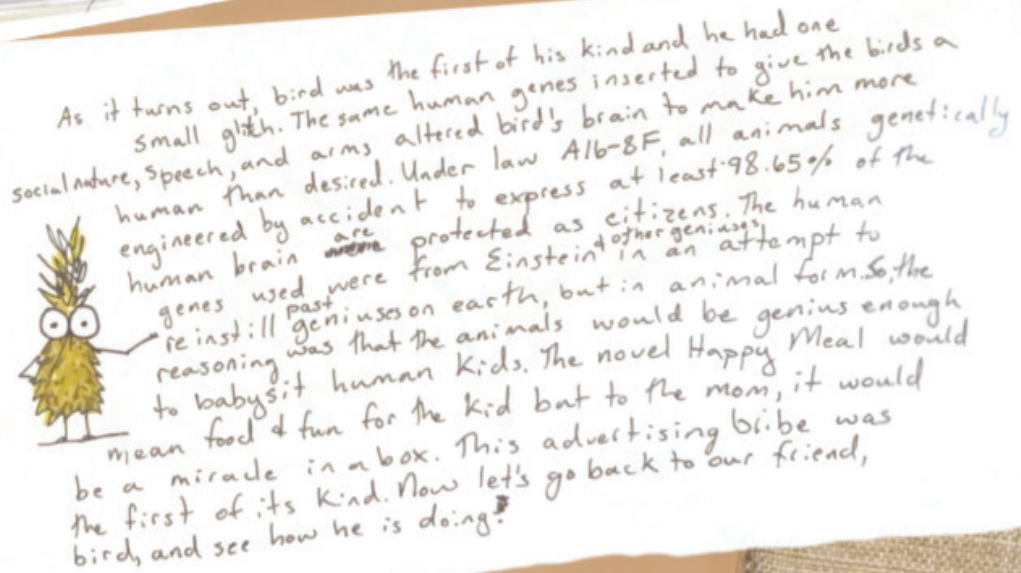 As it turns out, bird was the first of his kind and he had one
small glitch. The same human genes inserted to give the birds a
social nature, speech, and arms altered bird's brain to make him more
human than desired. Under law A16-8F, all animals genetically
engineered by accident to express at least 98.65% of the
human brain are protected as citizens. The human
genes used were from Einstein & other geniuses in an attempt to
reinstill past geniuses on earth, but in animal form. So, the
reasoning was that the animals would be genius enough
to babysit human kids. The novel Happy Meal would
mean food & fun for the kid but to the mom, it would
be a miracle in a box. This advertising bribe was
the first of its kind. Now let's go back to our friend,
bird, and see how he is doing!